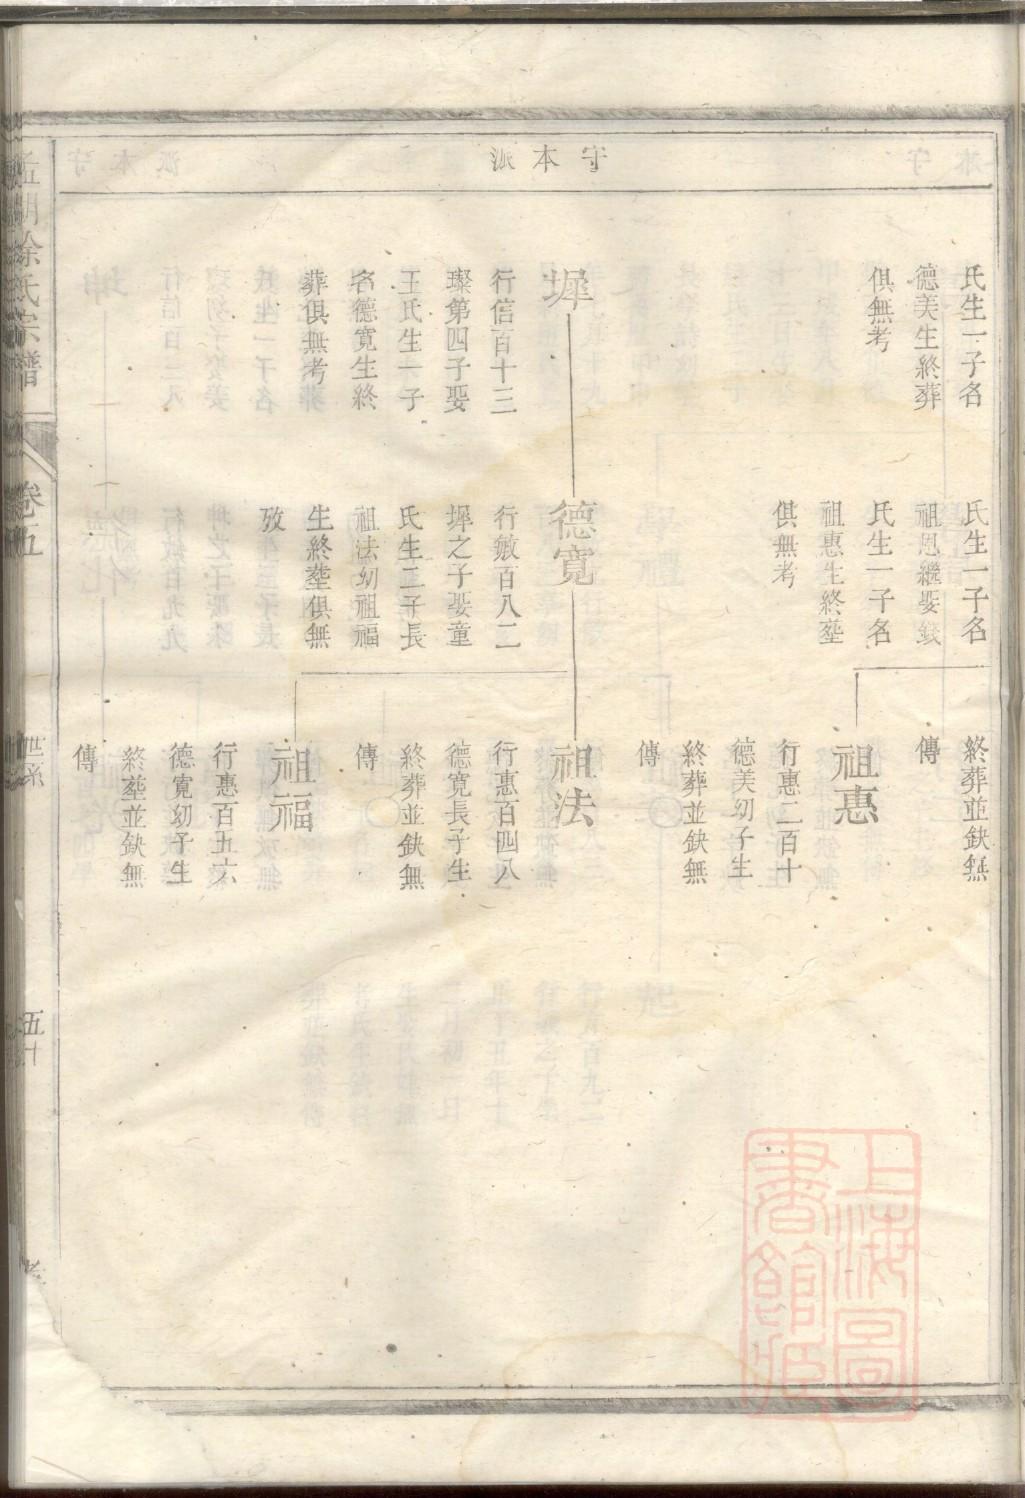 守本派
氏生一子名
德美生終葬
俱無考
墀
行信百十三
璨第四子娶
王氏生一子
名德寬生終
葬俱無考
氏生一子名
祖恩繼娶錢
氏生一子名
祖惠生終塟
俱無考
德寬
行敏百八二
墀之子娶童
氏生二子長
祖法幼祖福
生終塟俱無
攷
終葬並缺無
傳
祖惠
行惠二百十
德美幼子生
終葬並缺無
傳
祖法
行惠百四八
德寬長子生
終葬並缺無
傳
祖福
行惠百五六
德寬幼子生
終塟並缺無
傳
徐氏宗譜
卷五
世系
五十
上海圖
書館藏